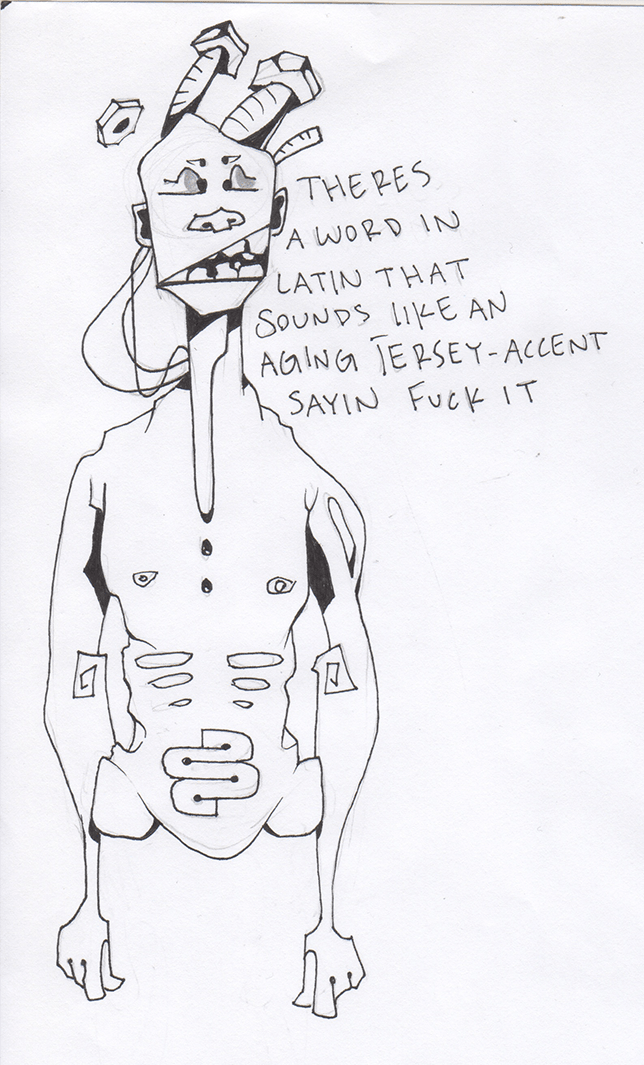 THERES
A WORD IN
LATIN THAT
SOUNDS LIKE AN
AGING JERSEY-ACCENT
SAYIN FUCK IT